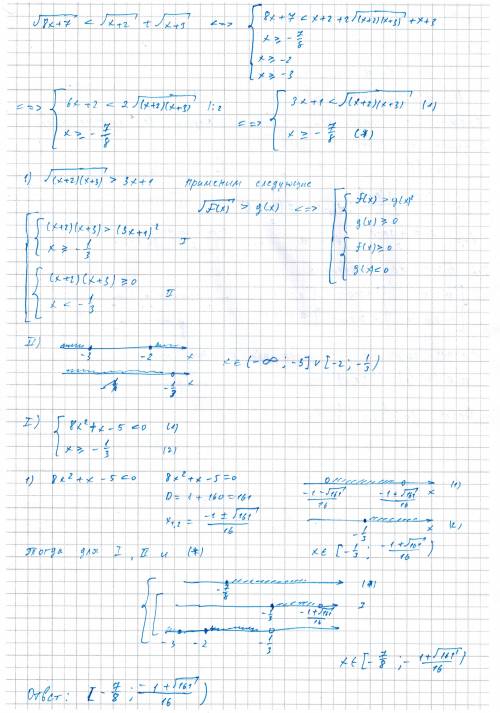 √(8x+7) < √(x+2) + √(x+3) <=> { 8x+7 < x+2+2√((x+2)(x+3)) + x+3
x ≥ -7/8
x ≥ -2
x ≥ -3
<=> { 6x+2 < 2√((x+2)(x+3)) |:2 <=> { 3x+1 < √((x+2)(x+3)) (1)
x ≥ -7/8 x ≥ -7/8 (*)
1) √((x+2)(x+3)) > 3x+1 применим следующие
√f(x) > g(x) <=> [ { f(x) > g(x)²
g(x) ≥ 0
{ f(x) ≥ 0
g(x) < 0
[ { (x+2)(x+3) > (3x+1)²
x ≥ -1/3 I
{ (x+2)(x+3) ≥ 0
x < -1/3 II
II) -3 -2 x
-1/3 x
x ∈ (-∞; -3] ∨ [-2; -1/3)
I) { 8x²+x-5 < 0 (1)
x ≥ -1/3 (2)
1) 8x²+x-5 < 0 8x²+x-5 = 0
D = 1 + 160 = 161
x₁,₂ = (-1 ± √161)/16
(-1-√161)/16 (-1+√161)/16 x (1)
-1/3 x (2)
x ∈ [-1/3; (-1+√161)/16)
Тогда для I, II и (*)
-7/8 (*)
-1/3 (-1+√161)/16 I
-3 -2 -1/3
x ∈ [-7/8; -(1+√161)/16)
Ответ: [-7/8; (-1+√161)/16)